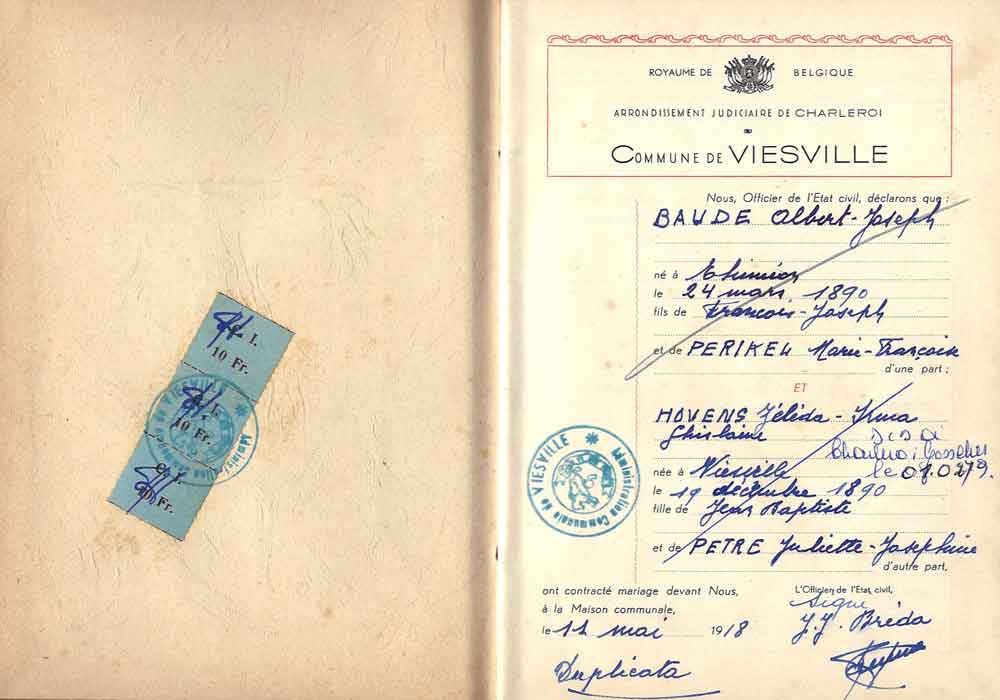 C. I.
10 Fr.
C. I.
10 Fr.
C. I.
10 Fr.
Administration Communale de VIESVILLE
ROYAUME DE BELGIQUE
ARRONDISSEMENT JUDICIAIRE DE CHARLEROI
COMMUNE DE VIESVILLE
Nous, Officier de l'Etat civil, déclarons que :
BAUDE Albert-Joseph
né à Thiméon
le 24 mars 1890
fils de François-Joseph
et de PERIKEL Marie-Françoise
d'une part ;
ET
HOVENS Zélida-Irma
Ghislaine
née à Viesville
le 19 décembre 1890
fille de Jean Baptiste
et de PETRE Juliette-Josephine
d'autre part,
Administration Communale de VIESVILLE
ont contracté mariage devant Nous,
à la Maison communale,
le 11 mai 1918
L'Officier de l'Etat civil,
Signé
J.J. Bréda
Duplicata